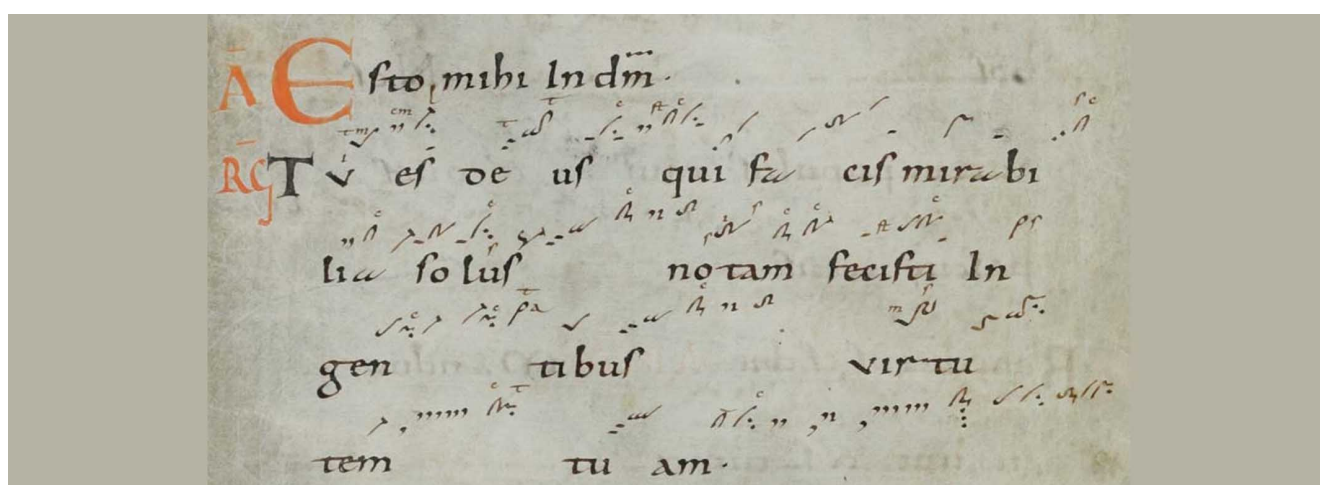 Ā Esto mihi In dm̄.
R̄G Tu es de us qui fa cis mirabi
lia so lus notam fecisti In
gen tibus virtu
tem tu am.